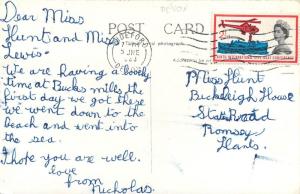 DEVON
Dear Miss
Hunt and Miss
Lewis.
We are having a lovely
time at Bucks mills the
first day we got there
we went down to the
beach and went into
the sea.
I hope you are well.
love
from
Nicholas.
POST CARD
BIDEFORD
JNE
DEVON
Miss Hunt
Buckleigh House
State Road
Romsey
Hants.